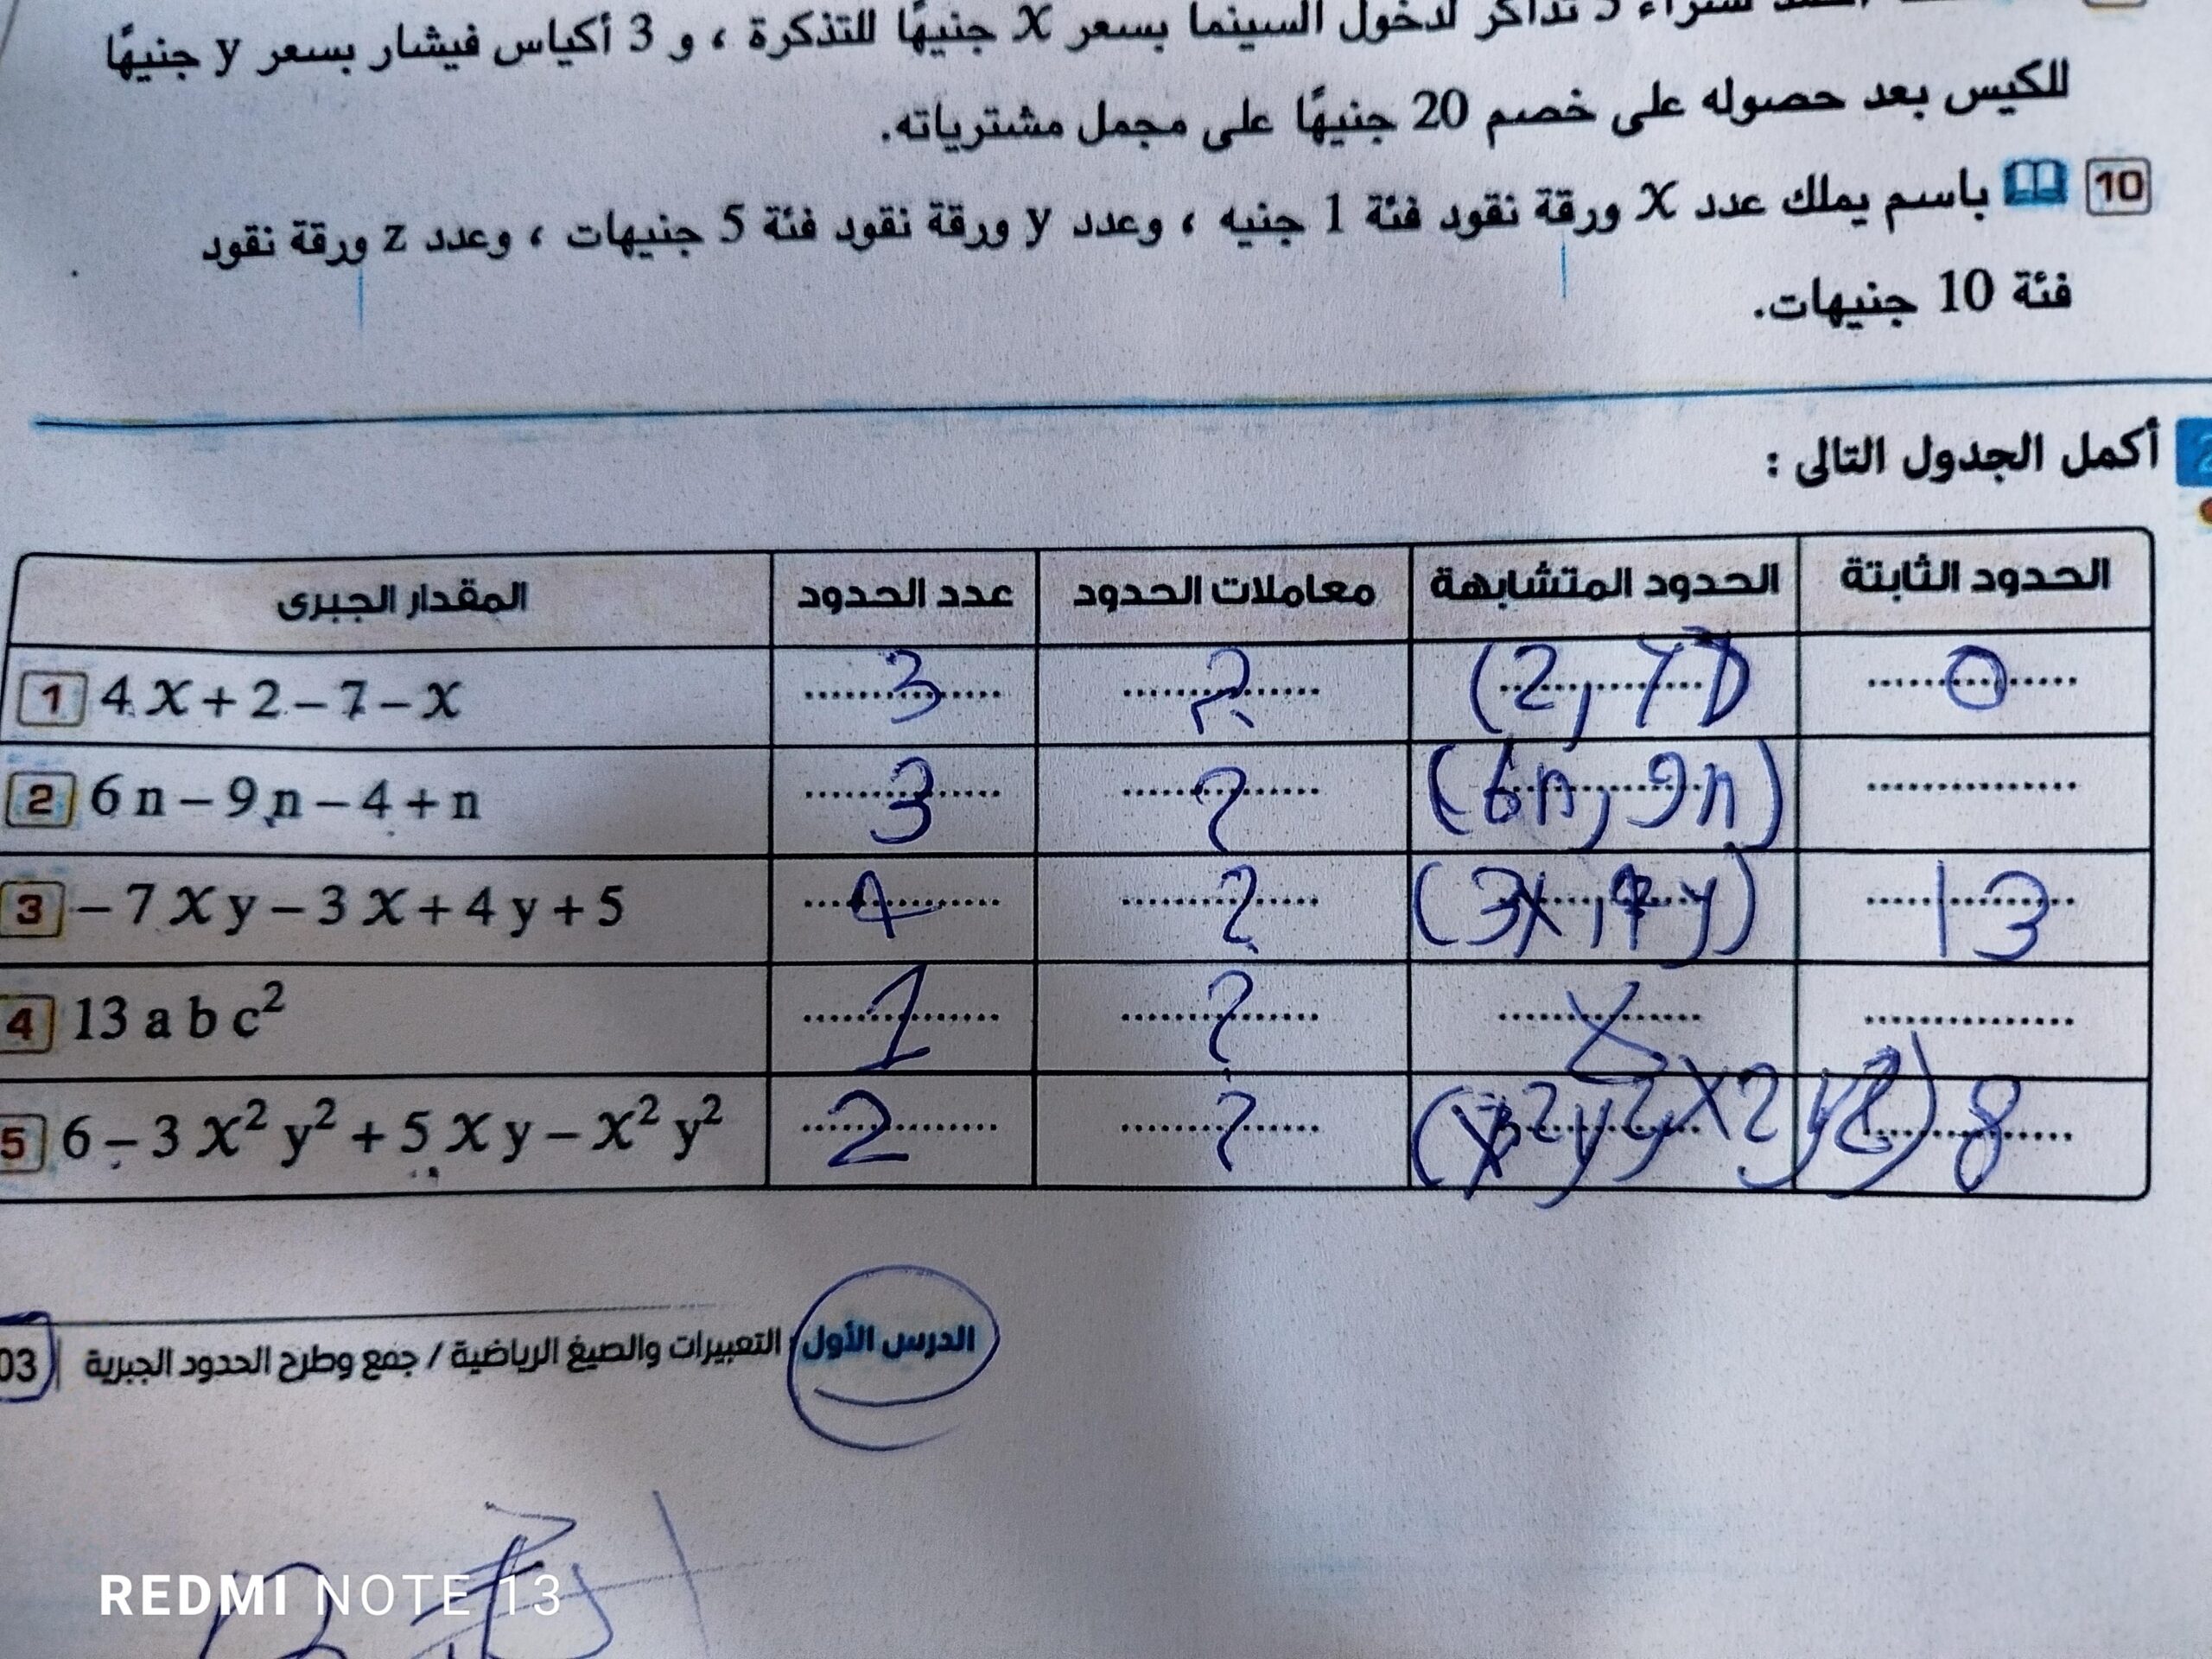 شراء 5 تذاكر لدخول السينما بسعر x جنيهًا للتذكرة ، و 3 أكياس فيشار بسعر y جنيهًا
للكيس بعد حصوله على خصم 20 جنيهًا على مجمل مشترياته.
10 باسم يملك عدد x ورقة نقود فئة 1 جنيه ، وعدد y ورقة نقود فئة 5 جنيهات ، وعدد z ورقة نقود
فئة 10 جنيهات.
2 أكمل الجدول التالى :
المقدار الجبرى عدد الحدود معاملات الحدود الحدود المتشابهة الحدود الثابتة
1 4 x + 2 – 7 – x 3 ? (2, 7) 0
2 6 n – 9 n – 4 + n 3 ? (6n, 9n)
3 – 7 x y – 3 x + 4 y + 5 4 ? (3x, 4y) 13
4 13 a b c² 1 ?
5 6 – 3 x² y² + 5 x y – x² y² 2 ? (x2y2, x2y2) 8
الدرس الأول : التعبيرات والصيغ الرياضية / جمع وطرح الحدود الجبرية 03
REDMI NOTE 13